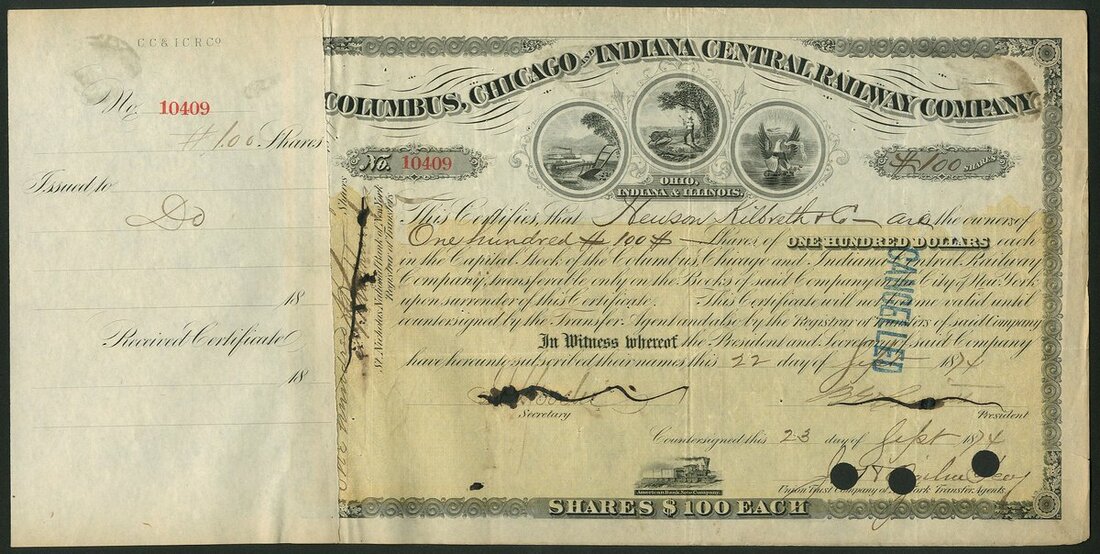 C C & I C R Co
No. 10409
# 100 Shares
Issued to
Do
18
Received Certificate
18
COLUMBUS, CHICAGO AND INDIANA CENTRAL RAILWAY COMPANY
No. 10409
# 100 SHARES
OHIO,
INDIANA & ILLINOIS.
This Certifies, that Hewson Kilbreth & Co — are the owners of
One hundred # 100 # — Shares of ONE HUNDRED DOLLARS each
in the Capital Stock of the Columbus, Chicago and Indiana Central Railway
Company, transferable only on the Books of said Company in the City of New York
upon surrender of this Certificate. This Certificate will not become valid until
countersigned by the Transfer Agent and also by the Registrar of Transfers of said Company
In Witness whereof the President and Secretary of said Company
have hereunto subscribed their names this 22 day of Sept 1874
Secretary
President
Countersigned this 23 day of Sept 1874
Union Trust Company of New York Transfer Agents
American Bank Note Company.
SHARES $100 EACH
CANCELLED
St. Nicholas National Bank of New York
Registrar of Transfers
Shares